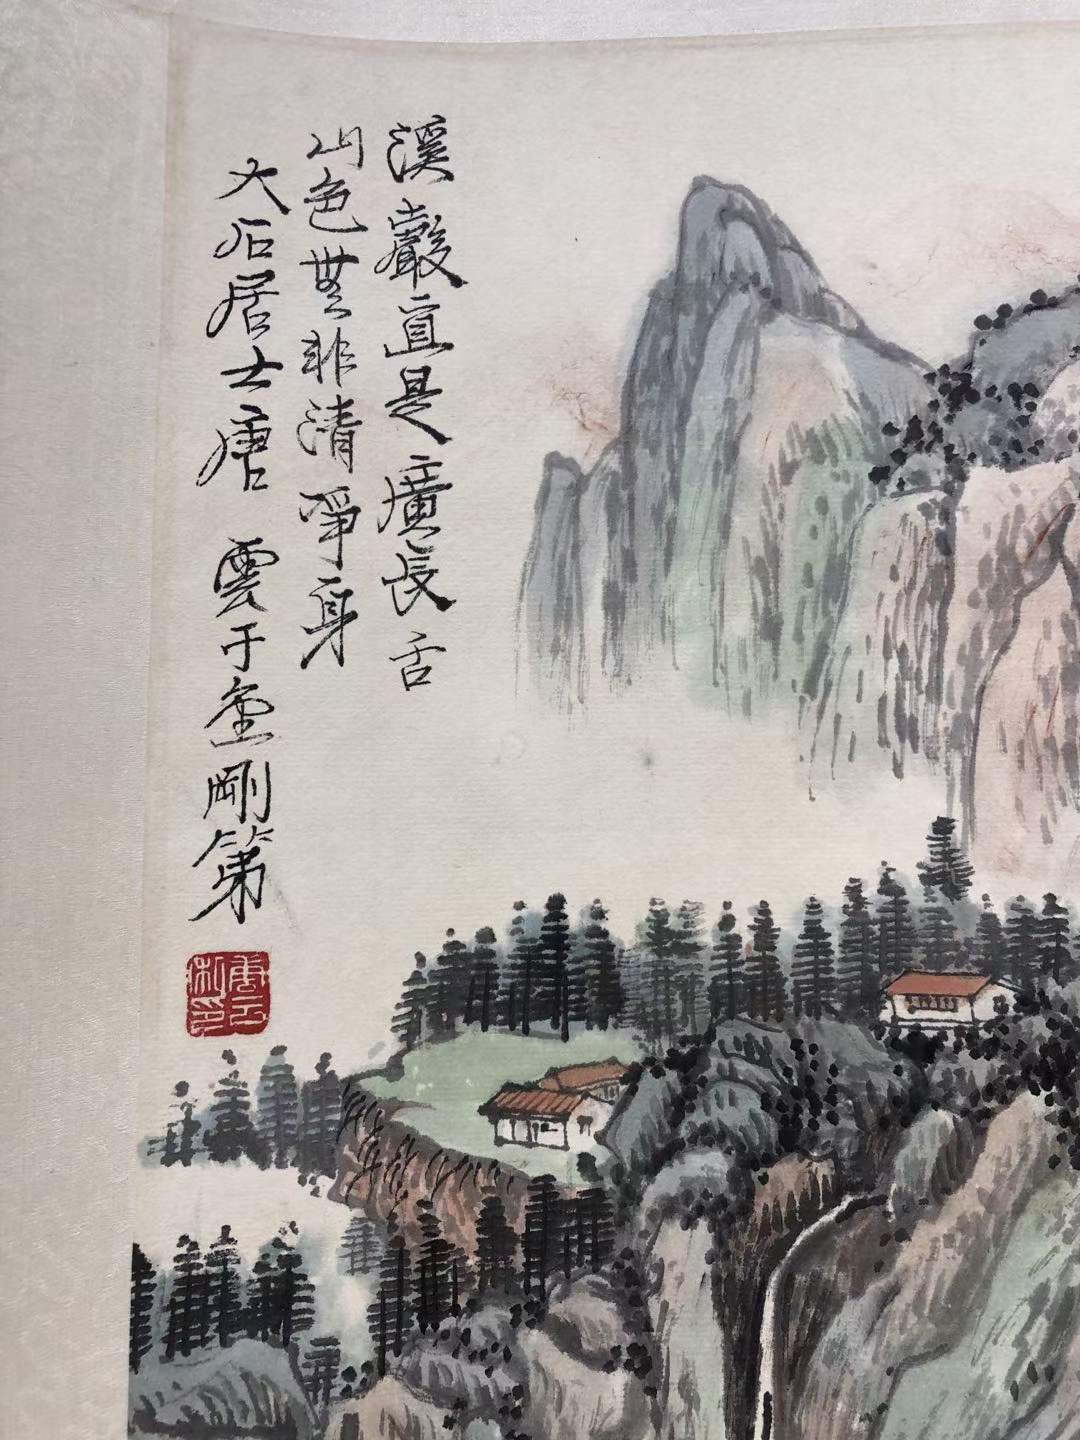 溪聲直是廣長舌
山色無非清淨身
大石居士唐雲于金剛第
唐云私印